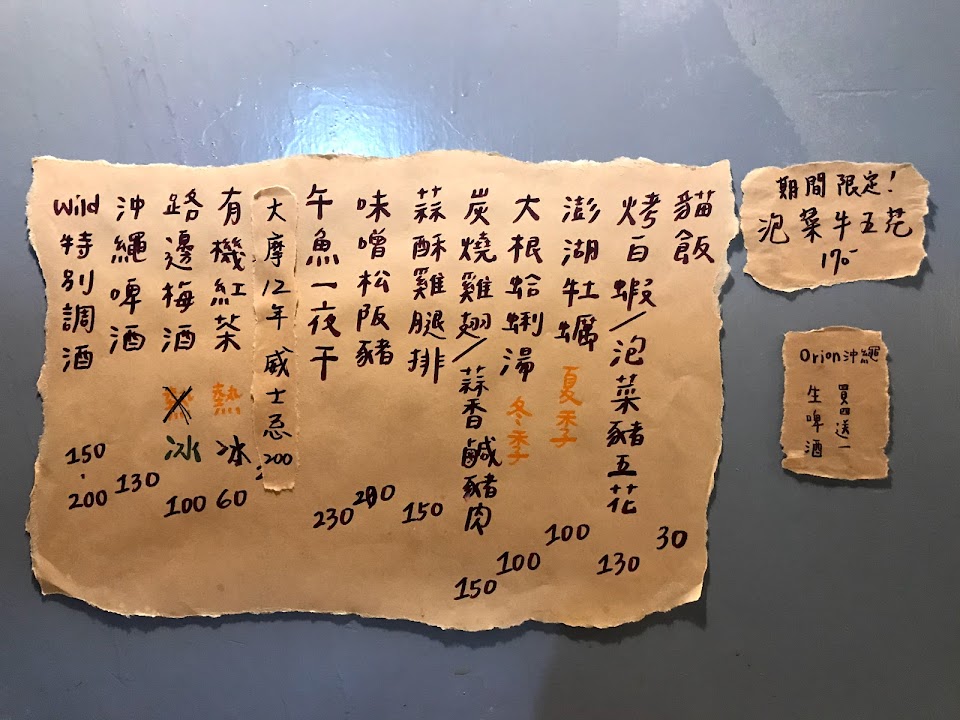 貓飯 30
烤白蝦/泡菜豬五花 130
澎湖牡蠣 夏季 100
大根蛤蜊湯 冬季 100
炭燒雞翅/蒜香鹹豬肉 150
蒜酥雞腿排 150
味噌松阪豬 200
午魚一夜干 230
大摩12年 威士忌 200
有機紅茶 熱 冰 60
路邊梅酒 冰 100
沖繩啤酒 130
Wild特別調酒 150.200
期間限定!
泡菜牛五花
170
Orion沖繩
買四送一
生啤酒